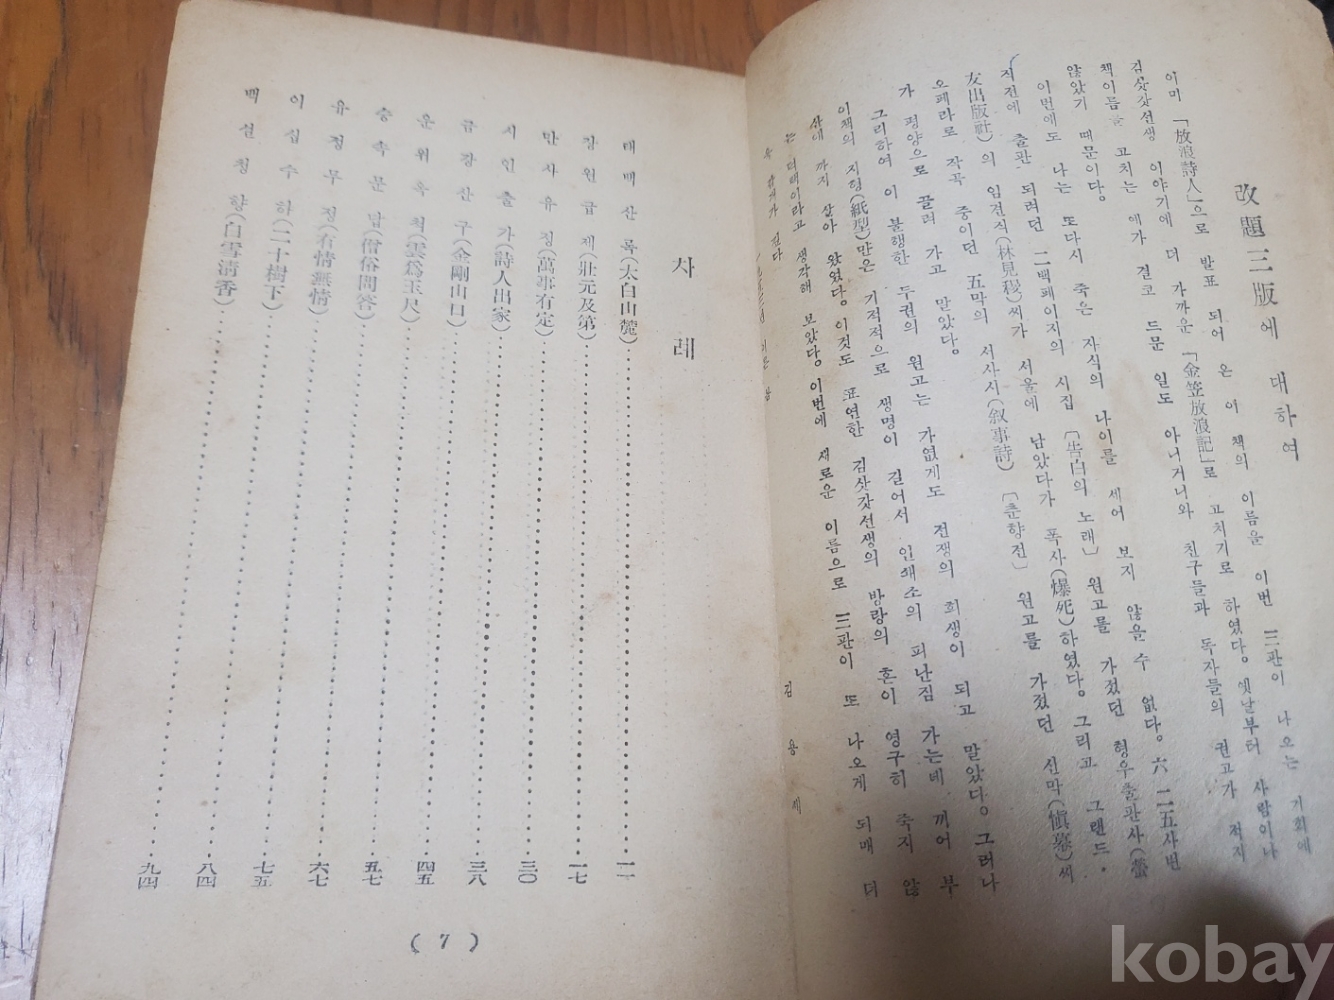 改題三版에 대하여
이미「放浪詩人」으로 발표 되어 온 이 책의 이름을 이번 三판이 나오는 기회에
김삿갓선생 이야기에 더 가까운「金笠放浪記」로 고치기로 하였다。옛날부터 사람이나
책이름을 고치는 예가 결코 드문 일도 아니거니와 친구들과 독자들의 권고가 적지
않았기 때문이다。
이번에도 나는 또다시 죽은 자식의 나이를 세어 보지 않을 수 없다。六 二五사변
직전에 출판 되려던 二백페이지의 시집〔告白의 노래〕원고를 가졌던 형우출판사(螢
友出版社)의 임견직(林見稷)씨가 서울에 남았다가 폭사(爆死)하였다。그리고 그랜드·
오페라로 작곡 중이던 五막의 서사시(敍事詩)〔춘향전〕원고를 가졌던 신막(愼幕)씨
가 평양으로 끌려 가고 말았다。
그리하여 이 불행한 두권의 원고는 가엾게도 전쟁의 희생이 되고 말았다。그러나
이책의 지형(紙型)만은 기적적으로 생명이 길어서 인쇄소의 피난짐 가는데 끼어 부
산에 까지 살아 왔었다。이것도 표연한 김삿갓선생의 방랑의 혼이 영구히 죽지 않
는 덕택이라고 생각해 보았다。이번에 새로운 이름으로 三판이 또 나오게 되매 더
욱 감개가 깊다
김용제
차례
태백산록(太白山麓)……一一
장원급제(壯元及第)……一七
만사유정(萬事有定)……三〇
시인출가(詩人出家)……三八
금강산구(金剛山口)……四五
운위옥척(雲爲玉尺)……五七
승속문답(僧俗問答)……六七
유정무정(有情無情)……七五
이십수하(二十樹下)……八四
백설청향(白雪淸香)……九四
( 7 )
kobay